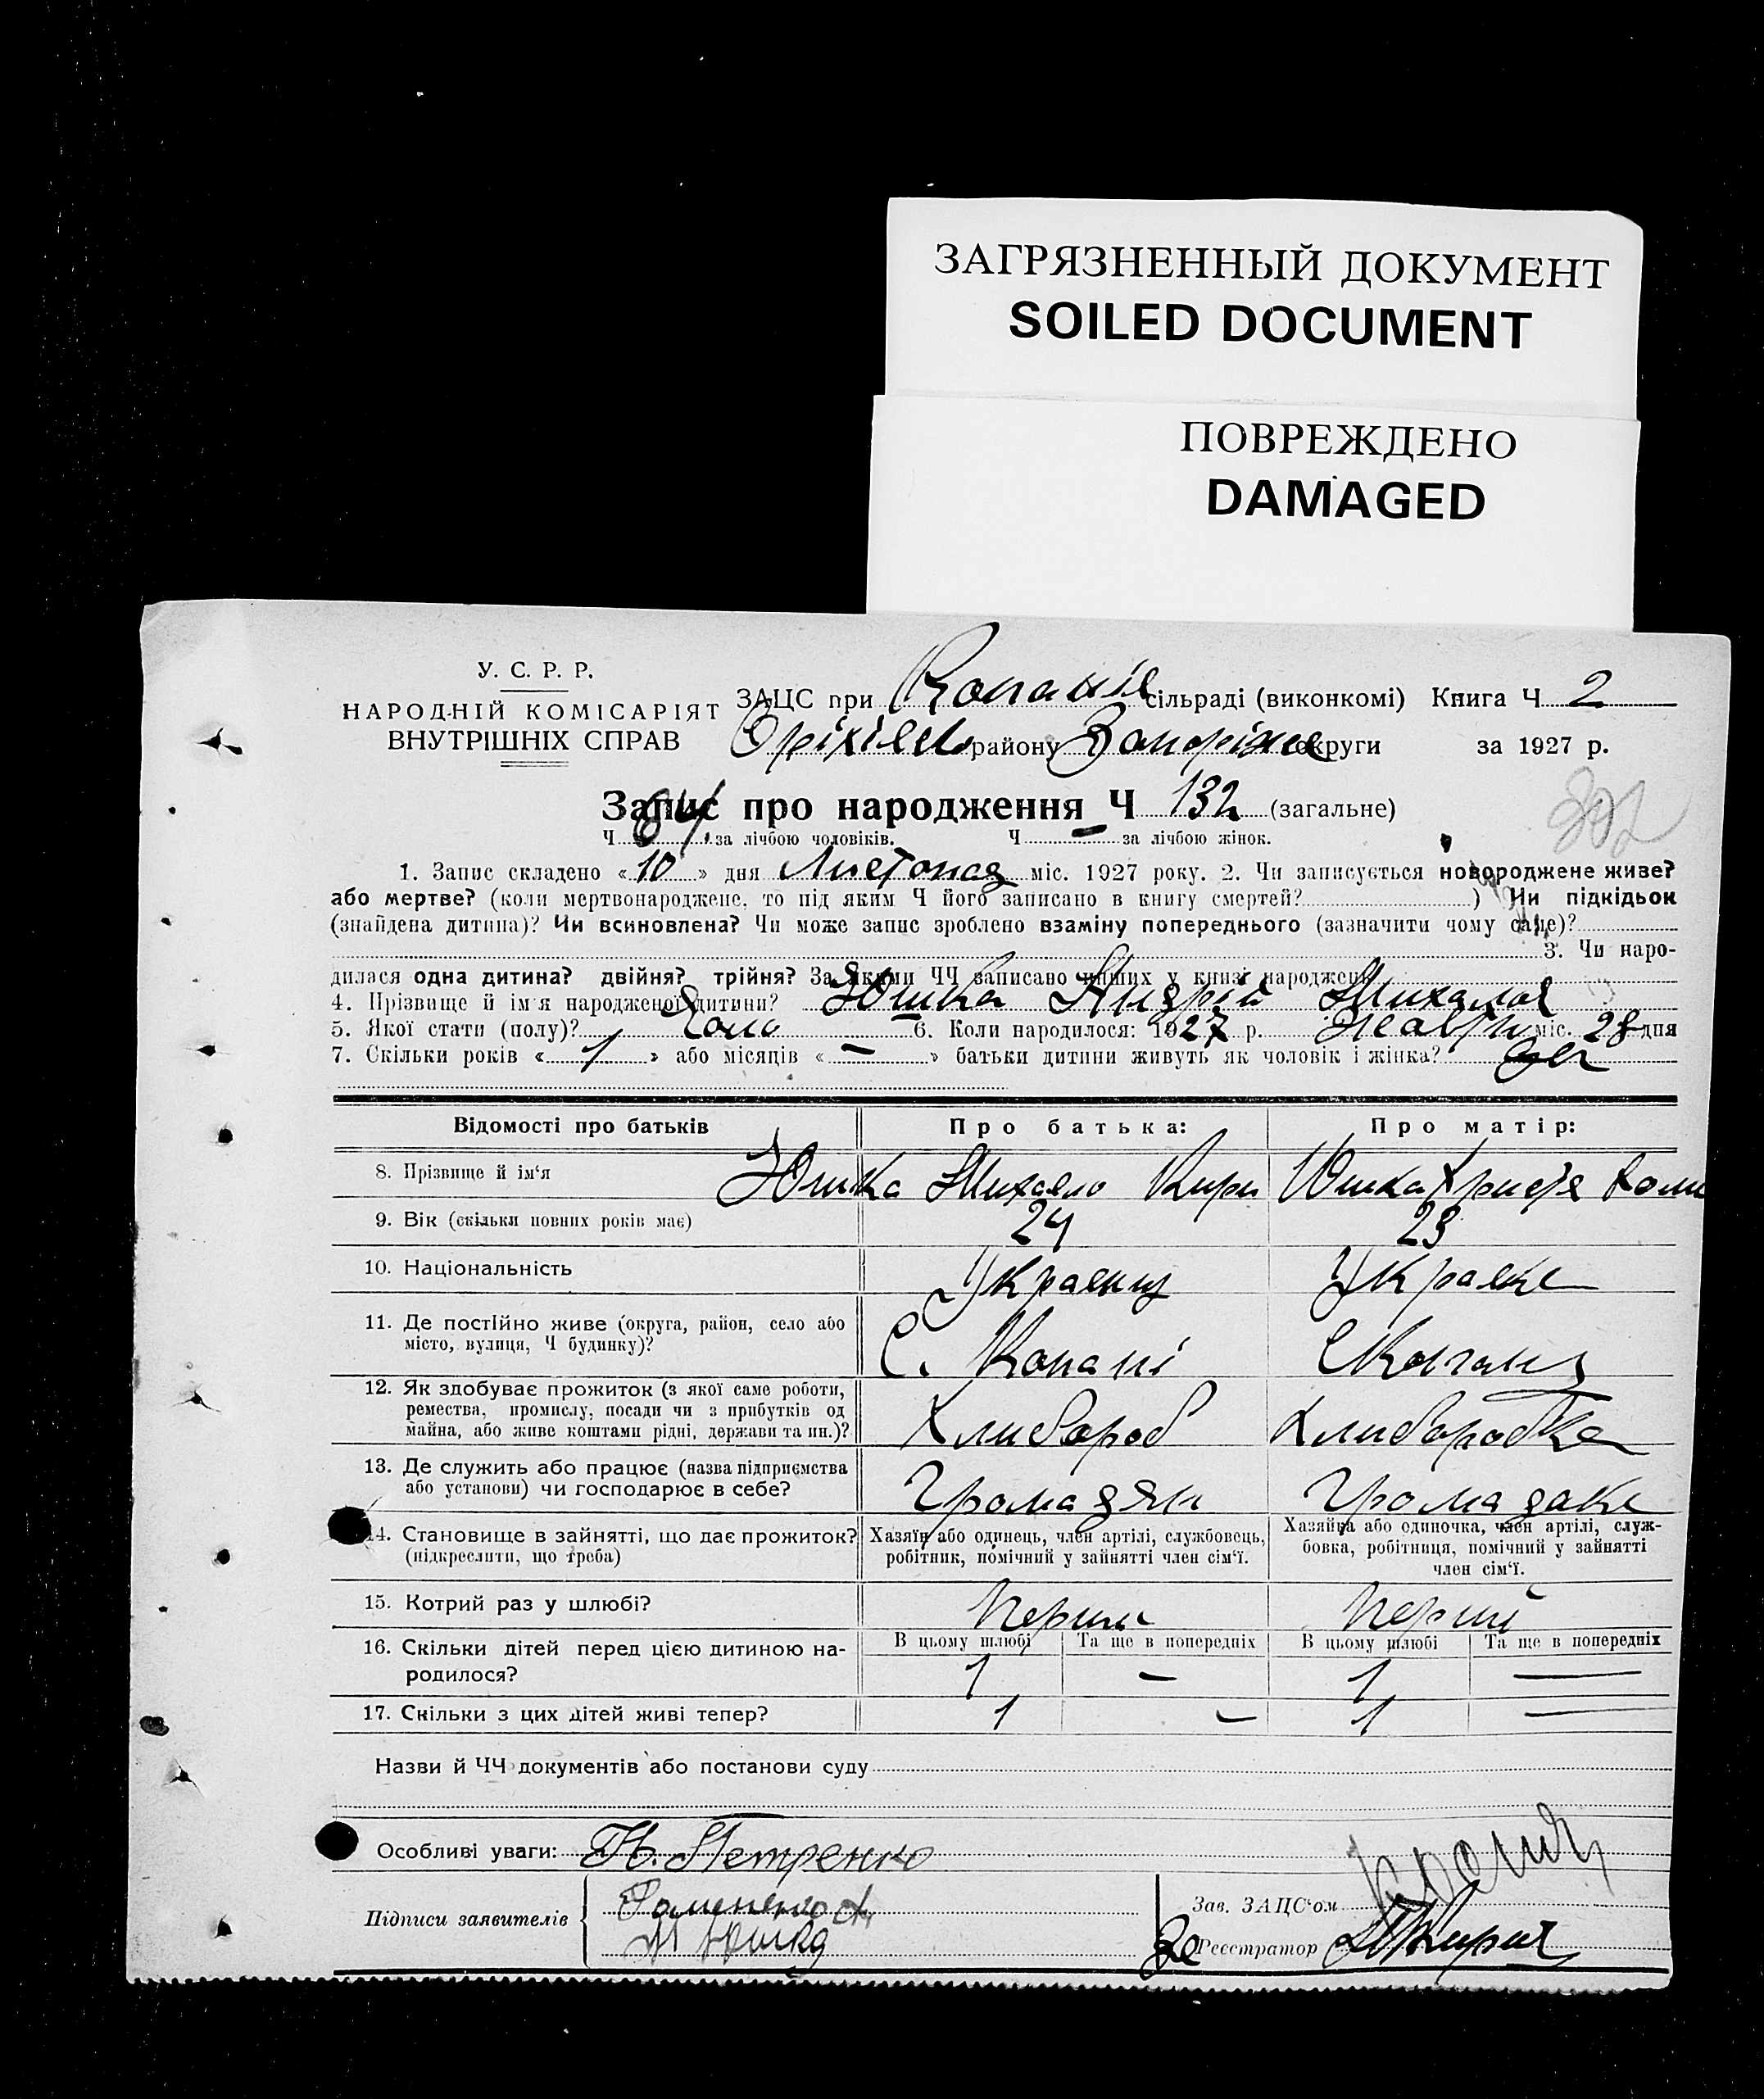 ЗАГРЯЗНЕННЫЙ ДОКУМЕНТ
SOILED DOCUMENT
ПОВРЕЖДЕНО
DAMAGED
У. С. Р. Р.
НАРОДНІЙ КОМІСАРІЯТ
ВНУТРІШНІХ СПРАВ
ЗАЦС при Копанів сільраді (виконкомі) Книга Ч 2
Оріхівс району Запоріж округи за 1927 р.
Запис про народження Ч 132 (загальне)
Ч 64 за лічбою чоловіків. Ч — за лічбою жінок.
1. Запис складено « 10 » дня Листопад міс. 1927 року. 2. Чи записується новороджене живе?
або мертве? (коли мертвонароджене, то під яким Ч його записано в книгу смертей? ) Чи підкідьок
(знайдена дитина)? Чи всиновлена? Чи може запис зроблено взаміну попереднього (зазначити чому саме)?
3. Чи наро-
дилася одна дитина? двійня? трійня? За якими ЧЧ записано инших у книзі народжень
4. Прізвище й ім'я народженої дитини? Юшка Андрій Михайлов
5. Якої стати (полу)? 6. Коли народилося: 1927 р. міс. 28 дня
7. Скільки років « 1 » або місяців « — » батьки дитини живуть як чоловік і жінка?
Відомості про батьків Про батька: Про матір:
8. Прізвище й ім'я Юшка Михайло Кири Юшка Христя
9. Вік (скільки повних років має) 24 23
10. Національність Украинц Украинке
11. Де постійно живе (округа, район, село або
місто, вулиця, Ч будинку)? С. Копані С Копані
12. Як здобуває прожиток (з якої саме роботи,
ремества, промислу, посади чи з прибутків од
майна, або живе коштами рідні, держави та ин.)? Хлибороб Хлиборобка
13. Де служить або працює (назва підприємства
або установи) чи господарює в себе? Громадян Громадаке
14. Становище в зайнятті, що дає прожиток?
(підкреслити, що треба)
Хазяїн або одинець, член артілі, службовець,
робітник, помічний у зайнятті член сім'ї.
Хазяйка або одиночка, член артілі, служ-
бовка, робітниця, помічний у зайнятті
член сім'ї.
15. Котрий раз у шлюбі? Перши Перший
16. Скільки дітей перед цією дитиною на-
родилося?
В цьому шлюбі Та ще в попередніх В цьому шлюбі Та ще в попередніх
1 — 1 —
17. Скільки з цих дітей живі тепер? 1 — 1 —
Назви й ЧЧ документів або постанови суду
Особливі уваги: Н. Петренко
Підписи заявителів
М Юшка
Зав. ЗАЦС'ом
За Реєстратор